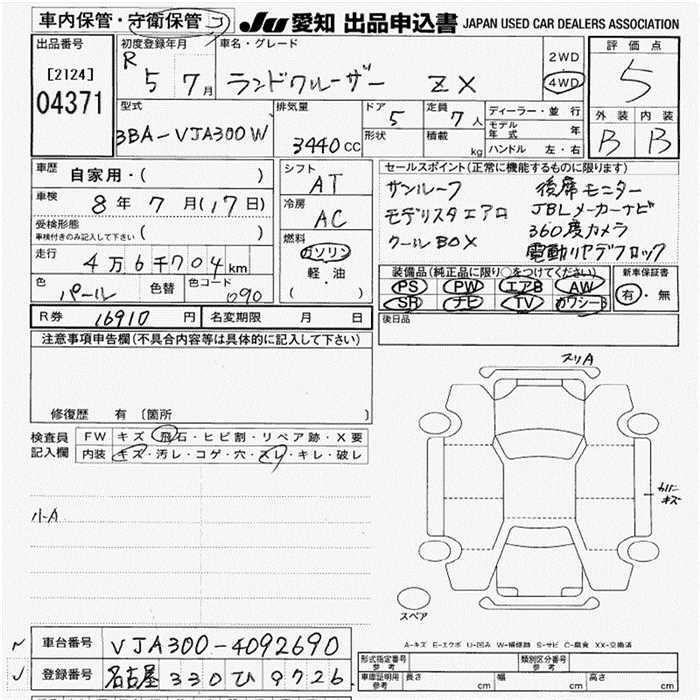 車内保管・守衛保管
JU 愛知 出品申込書 JAPAN USED CAR DEALERS ASSOCIATION
出品番号
[2124]
04371
初度登録年月
R 5 7月
車名・グレード
ランドクルーザー ZX
2WD
4WD
評価点
5
外装 内装
B B
型式
3BA-VJA300W
排気量
3440cc
ドア
5
形状
定員
7人
積載
kg
ディーラー・並行
モデル年式 年
ハンドル 左・右
車歴
自家用・( )
車検
8年 7月(17日)
受検形態
車検付きのみ記入して下さい ( )
走行
4万6千704km
色
パール
色替
色コード
090
シフト
AT
冷房
AC
燃料
ガソリン
軽・油
( )
セールスポイント(正常に機能するものに限ります)
サンルーフ 後席モニター
モデリスタエアロ JBLメーカーナビ
クールBOX 360度カメラ
電動リヤデフロック
装備品(純正品に限り○をつけてください)
PS PW エアB AW
SR ナビ TV カワシート
新車保証書
有・無
後日品
R券 16910円
名変期限 月 日
注意事項申告欄(不具合内容等は具体的に記入して下さい)
修復歴 有 [箇所 ]
検査員記入欄
FW キズ・飛石・ヒビ割・リペア跡・X要
内装 キズ・汚レ・コゲ・穴・スレ・キレ・破レ
小A
スリA
キズ
スペア
A-キズ E-エクボ U-凹み W-補修跡 S-サビ C-腐食 XX-交換済
車台番号 VJA300-4092690
登録番号 名古屋 330 ひ 9726
型式指定番号 参考
類別区分番号 参考
車庫証明用 参考
長さ cm 幅 cm 高さ cm